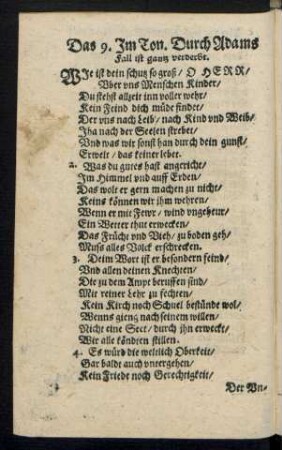 Das 9. Im Ton. Durch Adams
Fall ist gantz verderbt.
WJe ist dein schutz so groß/ O HERR/
Vber vns Menschen Kinder/
Du stehst allzeit inn voller wehr/
Kein Feind dich müde findet/
Der vns nach Leib/ nach Kind vnd Weib/
Jha nach der Seelen strebet/
Vnd was wir sonst han durch dein gunst/
Erweit/ das keiner lebet.
2. Was du gutes hast angericht/
Im Himmel vnd auff Erden/
Das wolt er gern machen zu nicht/
Keins können wir ihm wehren/
Wenn er mit Fewr/ wind vngeheur/
Ein Wetter thut erwecken/
Das Früchte vnd Vieh/ zu boden geh/
Muss alles Volck erschrecken.
3. Deim Wort ist er besondern feind/
Vnd allen deinen Knechten/
Die zu dem Ampt beruffen sind/
Mit reiner Lehr zu fechten/
Kein Kirch noch Schuel bestünde wol/
Wenns gieng nach seinem willen/
Nicht eine Sect/ durch ihn erweckt/
Wir alle köndten stillen.
4. Es würd die weltlich Oberkeit/
Gar baldt auch vntergehen/
Kein Friede noch Gerechtigkeit/
Der Vn-